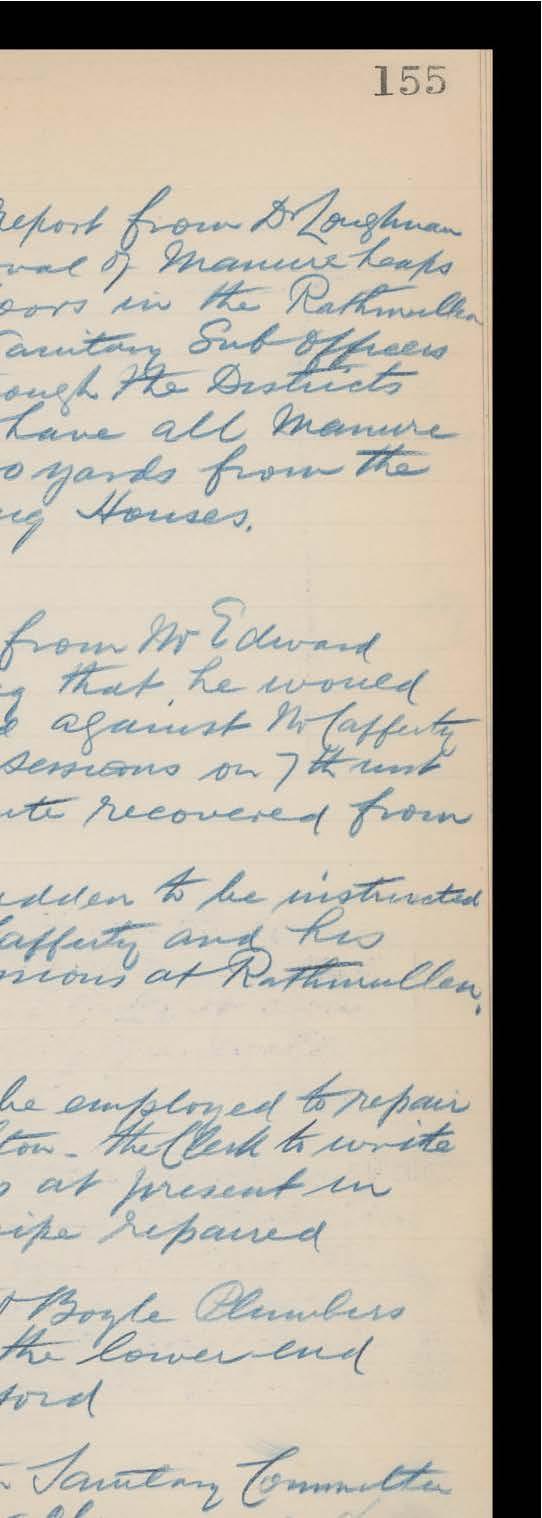 155
report from Dr Loughnan
oval of Manure heaps
oors in the Rathmullen
Sanitary Sub Officers
ough the Districts
have all Manure
0 yards from the
ng Houses.
from Mr Edward
g that he would
e against McCafferty
sessions on 7th inst
ute recovered from
adden to be instructed
afferty and his
ssions at Rathmullen.
be employed to repair
ton - the Clerk to write
s at present in
ipe repaired
Boyle Plumbers
the lower end
ford
Sanitary Committee